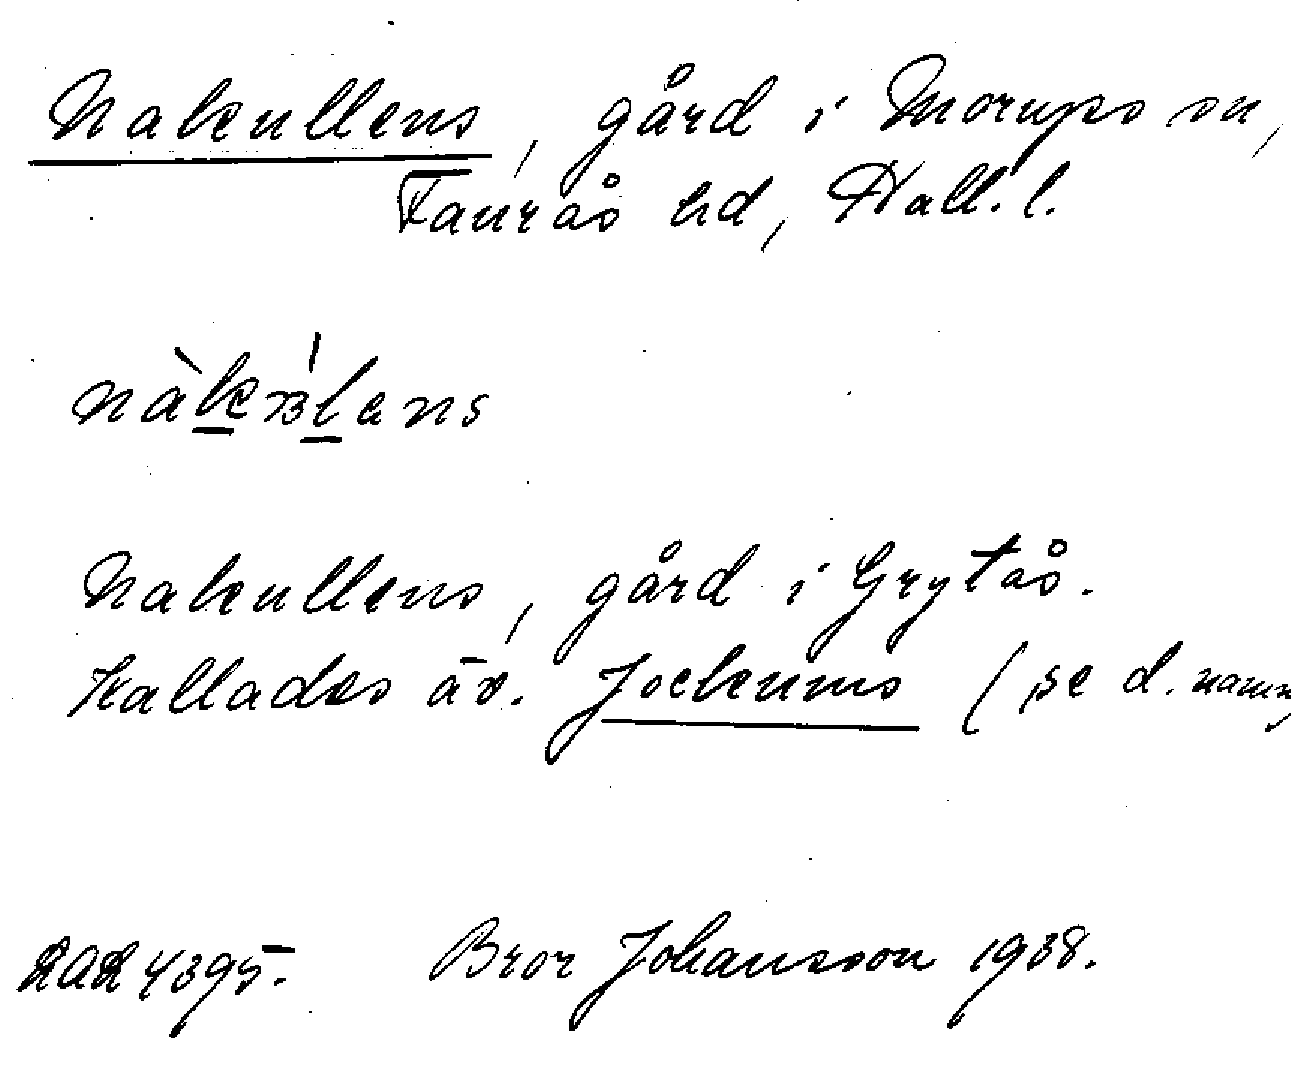 Nakullens, gård i Morups sn,
Faurås hd, Hall. l.
Nakullens, gård i Grytås.
Kallades äv. Jockums (se d. namn)
4395. Bror Johansson 1938.